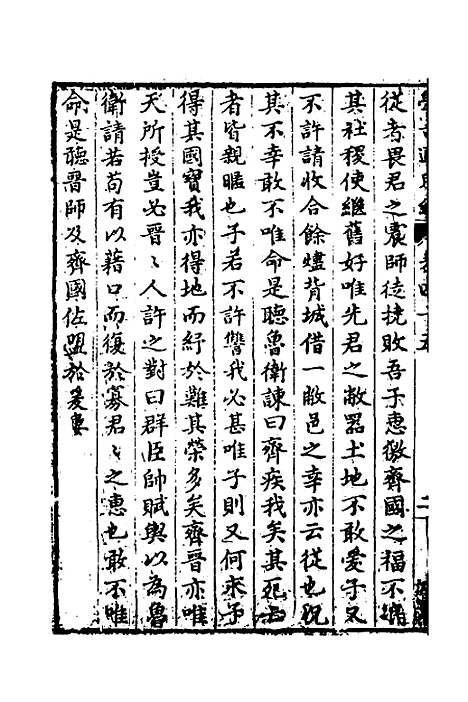 從者畏君之震師徒撓敗吾子惠徼齊國之福不
其社稷使繼舊好唯先君之敝器土地不敢愛子又
不許請收合餘燼背城借一敝邑之幸亦云從也況
其不幸敢不唯命是聽魯衛諫曰齊疾我矣其死亡
者皆親暱也子若不許讐我必甚唯子則又何求子
得其國寶我亦得地而紓於難其榮多矣齊晉亦唯
天所授豈必晉〻人許之對曰群臣帥賦輿以為魯
衛請若苟有以藉口而復於寡君〻之惠也敢不唯
命是聽晉師及齊國佐盟於爰婁